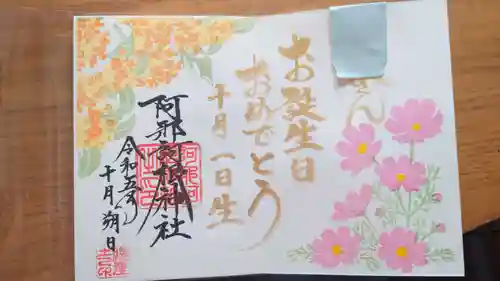 さん
お誕生日
おめでとう
十月一日生
阿那訶根神社
令和五年
十月朔日